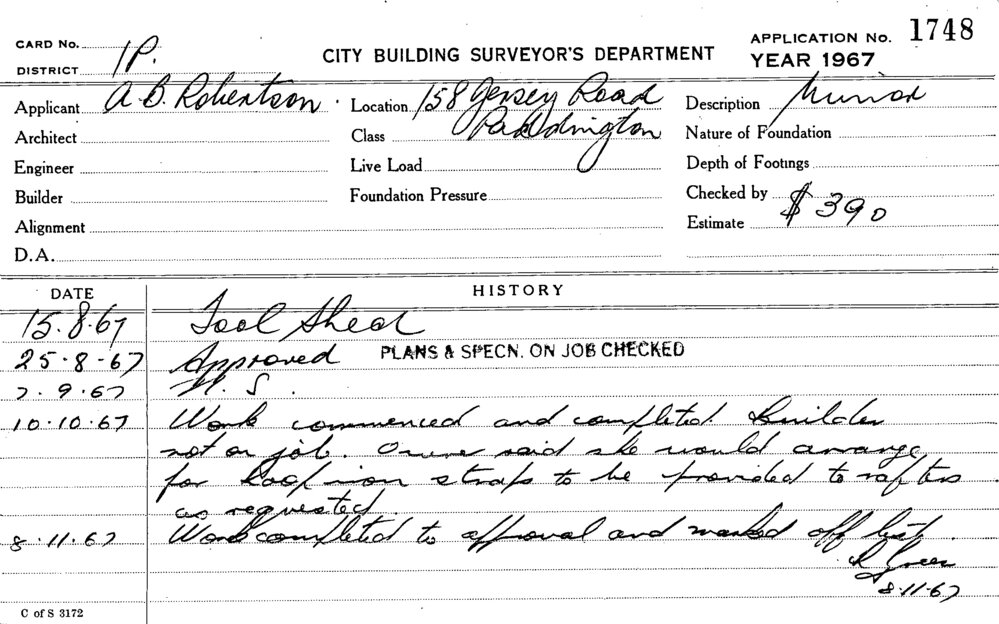 CARD No. 1P.
DISTRICT
CITY BUILDING SURVEYOR'S DEPARTMENT
APPLICATION No. 1748
YEAR 1967
Applicant A. B. Robertson
Location 158 Jersey Road
Paddington
Description Minor
Architect
Class
Nature of Foundation
Engineer
Live Load
Depth of Footings
Builder
Foundation Pressure
Checked by
Alignment
Estimate $390
D.A.
DATE
HISTORY
15.8.67 Tool Shed
25.8-67 Approved PLANS & SPECN. ON JOB CHECKED
7.9.67 N.S.
10.10.67 Work commenced and completed. Builder
not on job. Owner said she would arrange
for hoop iron straps to be provided to rafters
as requested.
8.11.67 Work completed to approval and marked off list.
Green
8.11.67
C of S 3172